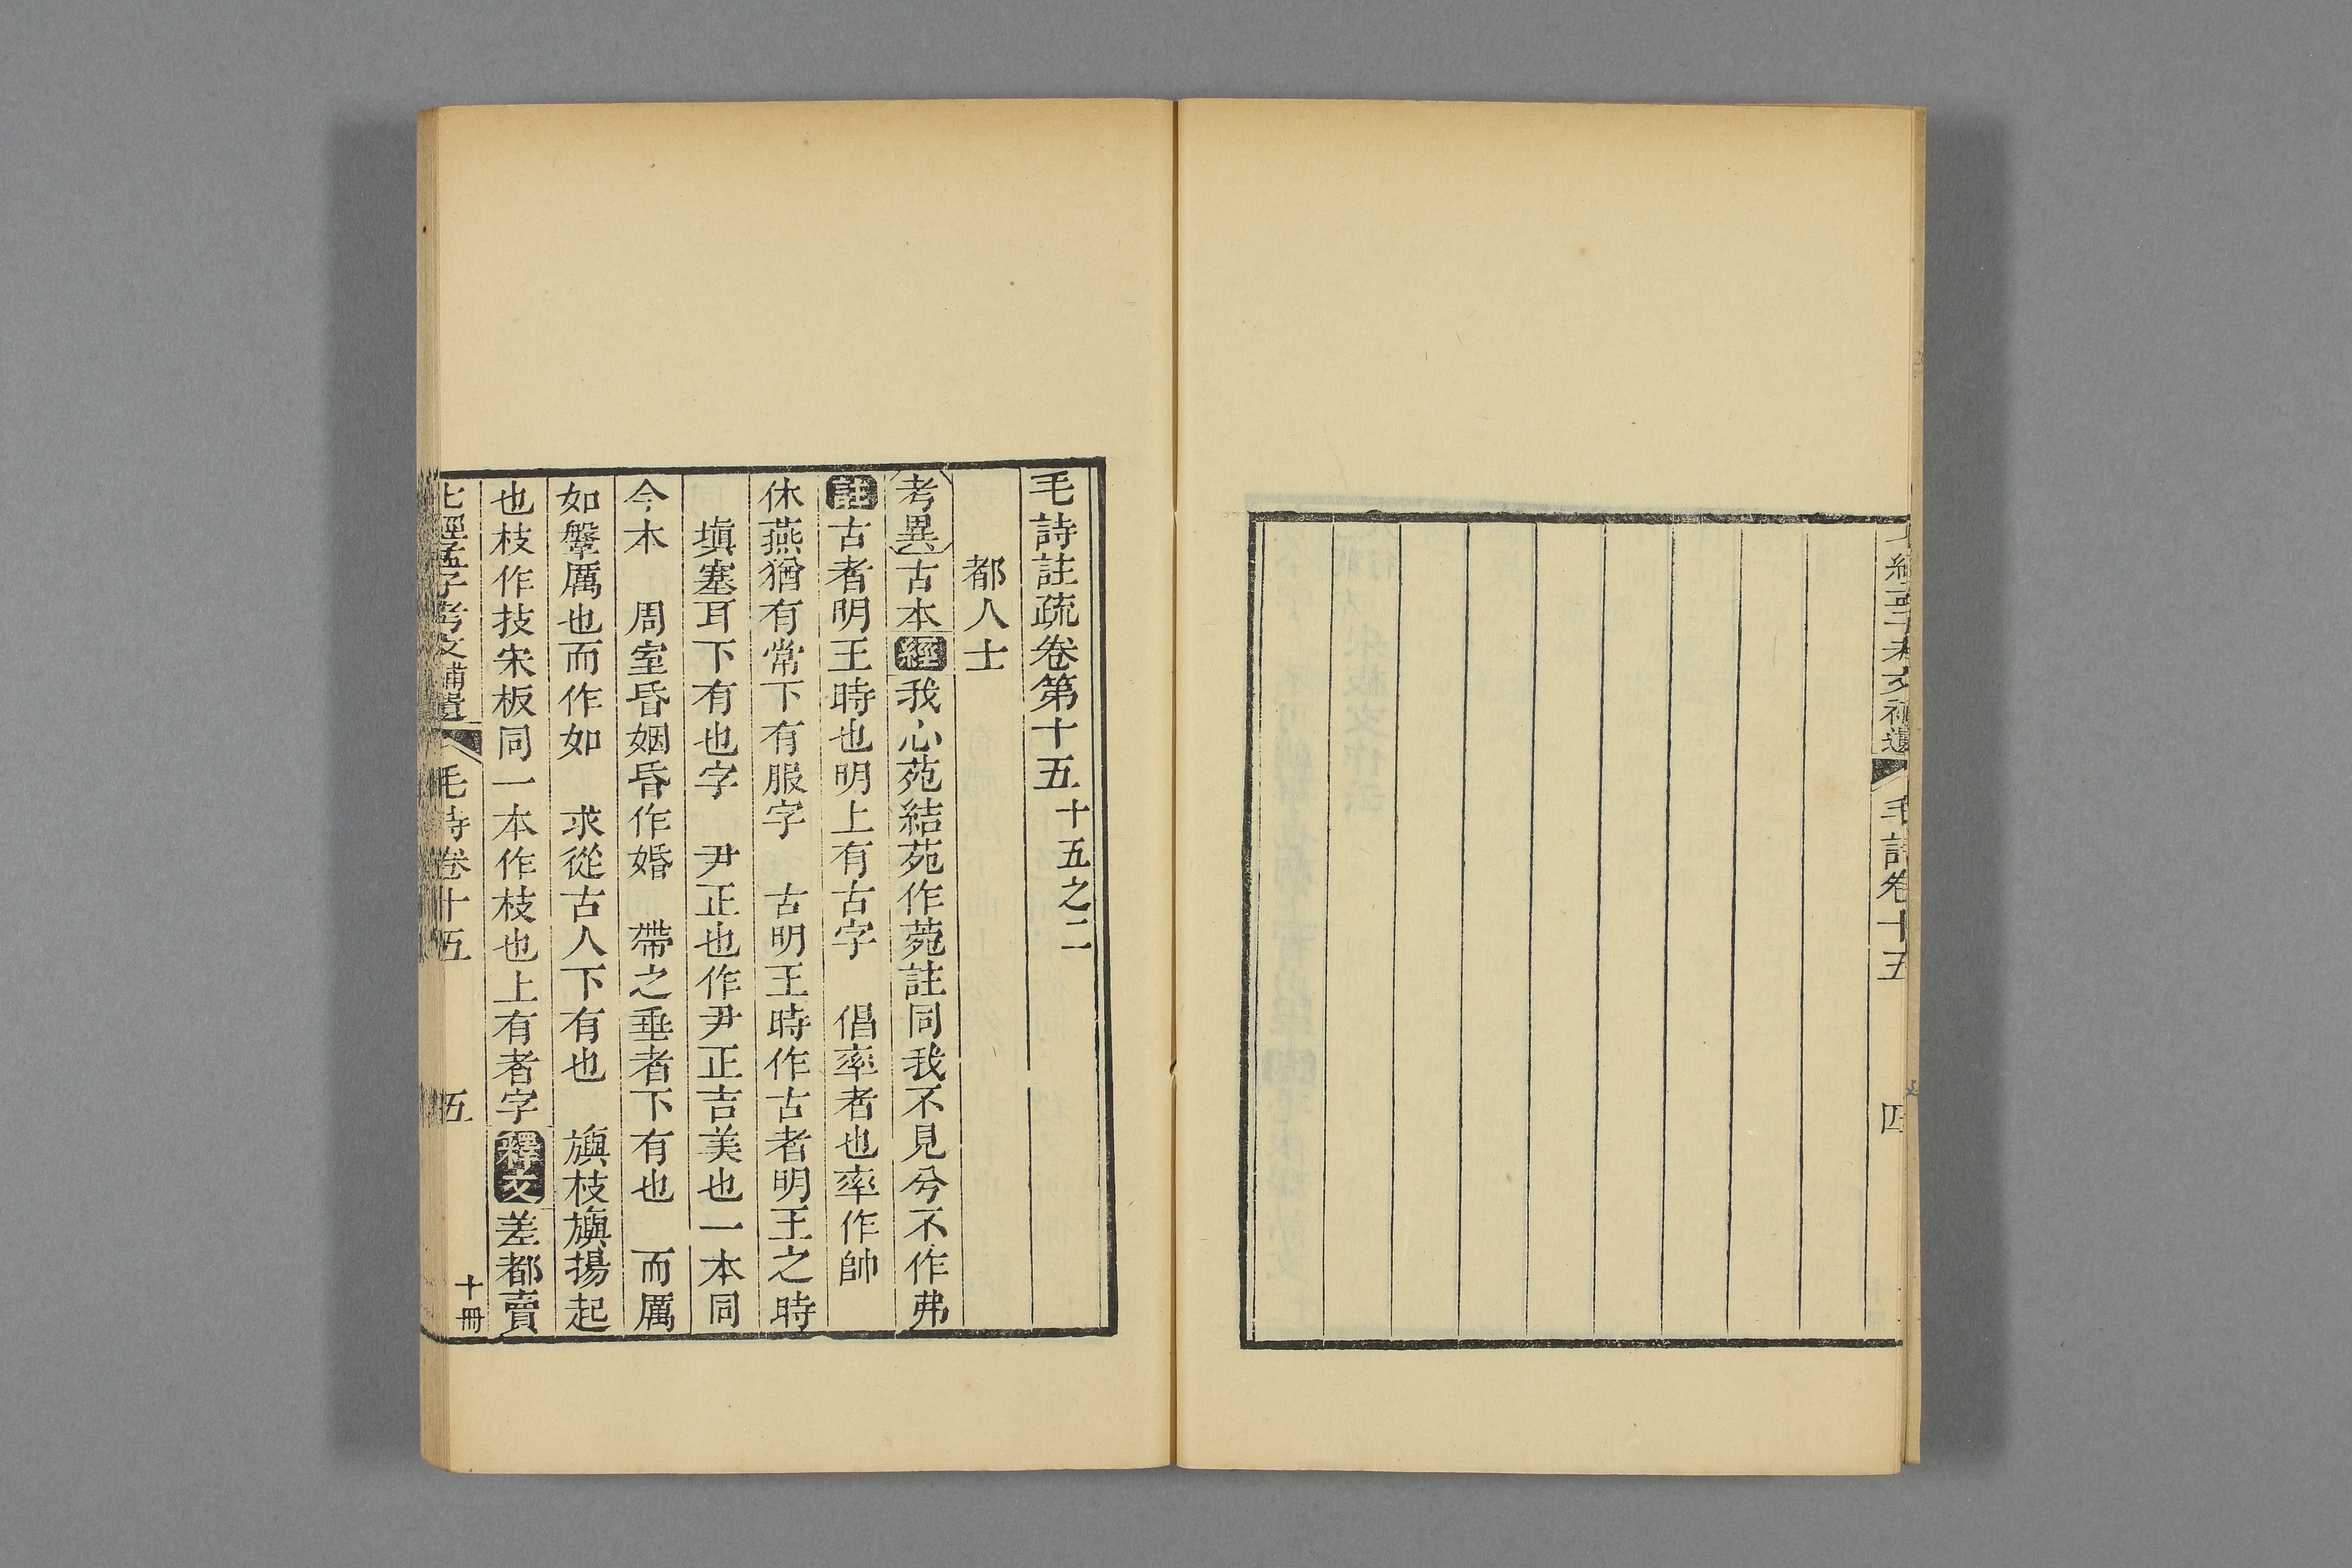 七經孟子考文補遺　毛詩卷十五　四
毛詩註疏卷第十五 十五之二
都人士
考異 古本 經 我心苑結苑作菀註同我不見兮不作弗
註 古者明王時也明上有古字　倡率者也率作帥
休燕猶有常下有服字　古明王時作古者明王之時
塡塞耳下有也字　尹正也作尹正吉美也一本同
今本　周室昏姻昏作婚　帶之垂者下有也　而厲
如鞶厲也而作如　求從古人下有也　旟枝旟揚起
也枝作技宋板同一本作枝也上有者字 釋文 差都賣
七經孟子考文補遺　毛詩卷十五　五　十冊